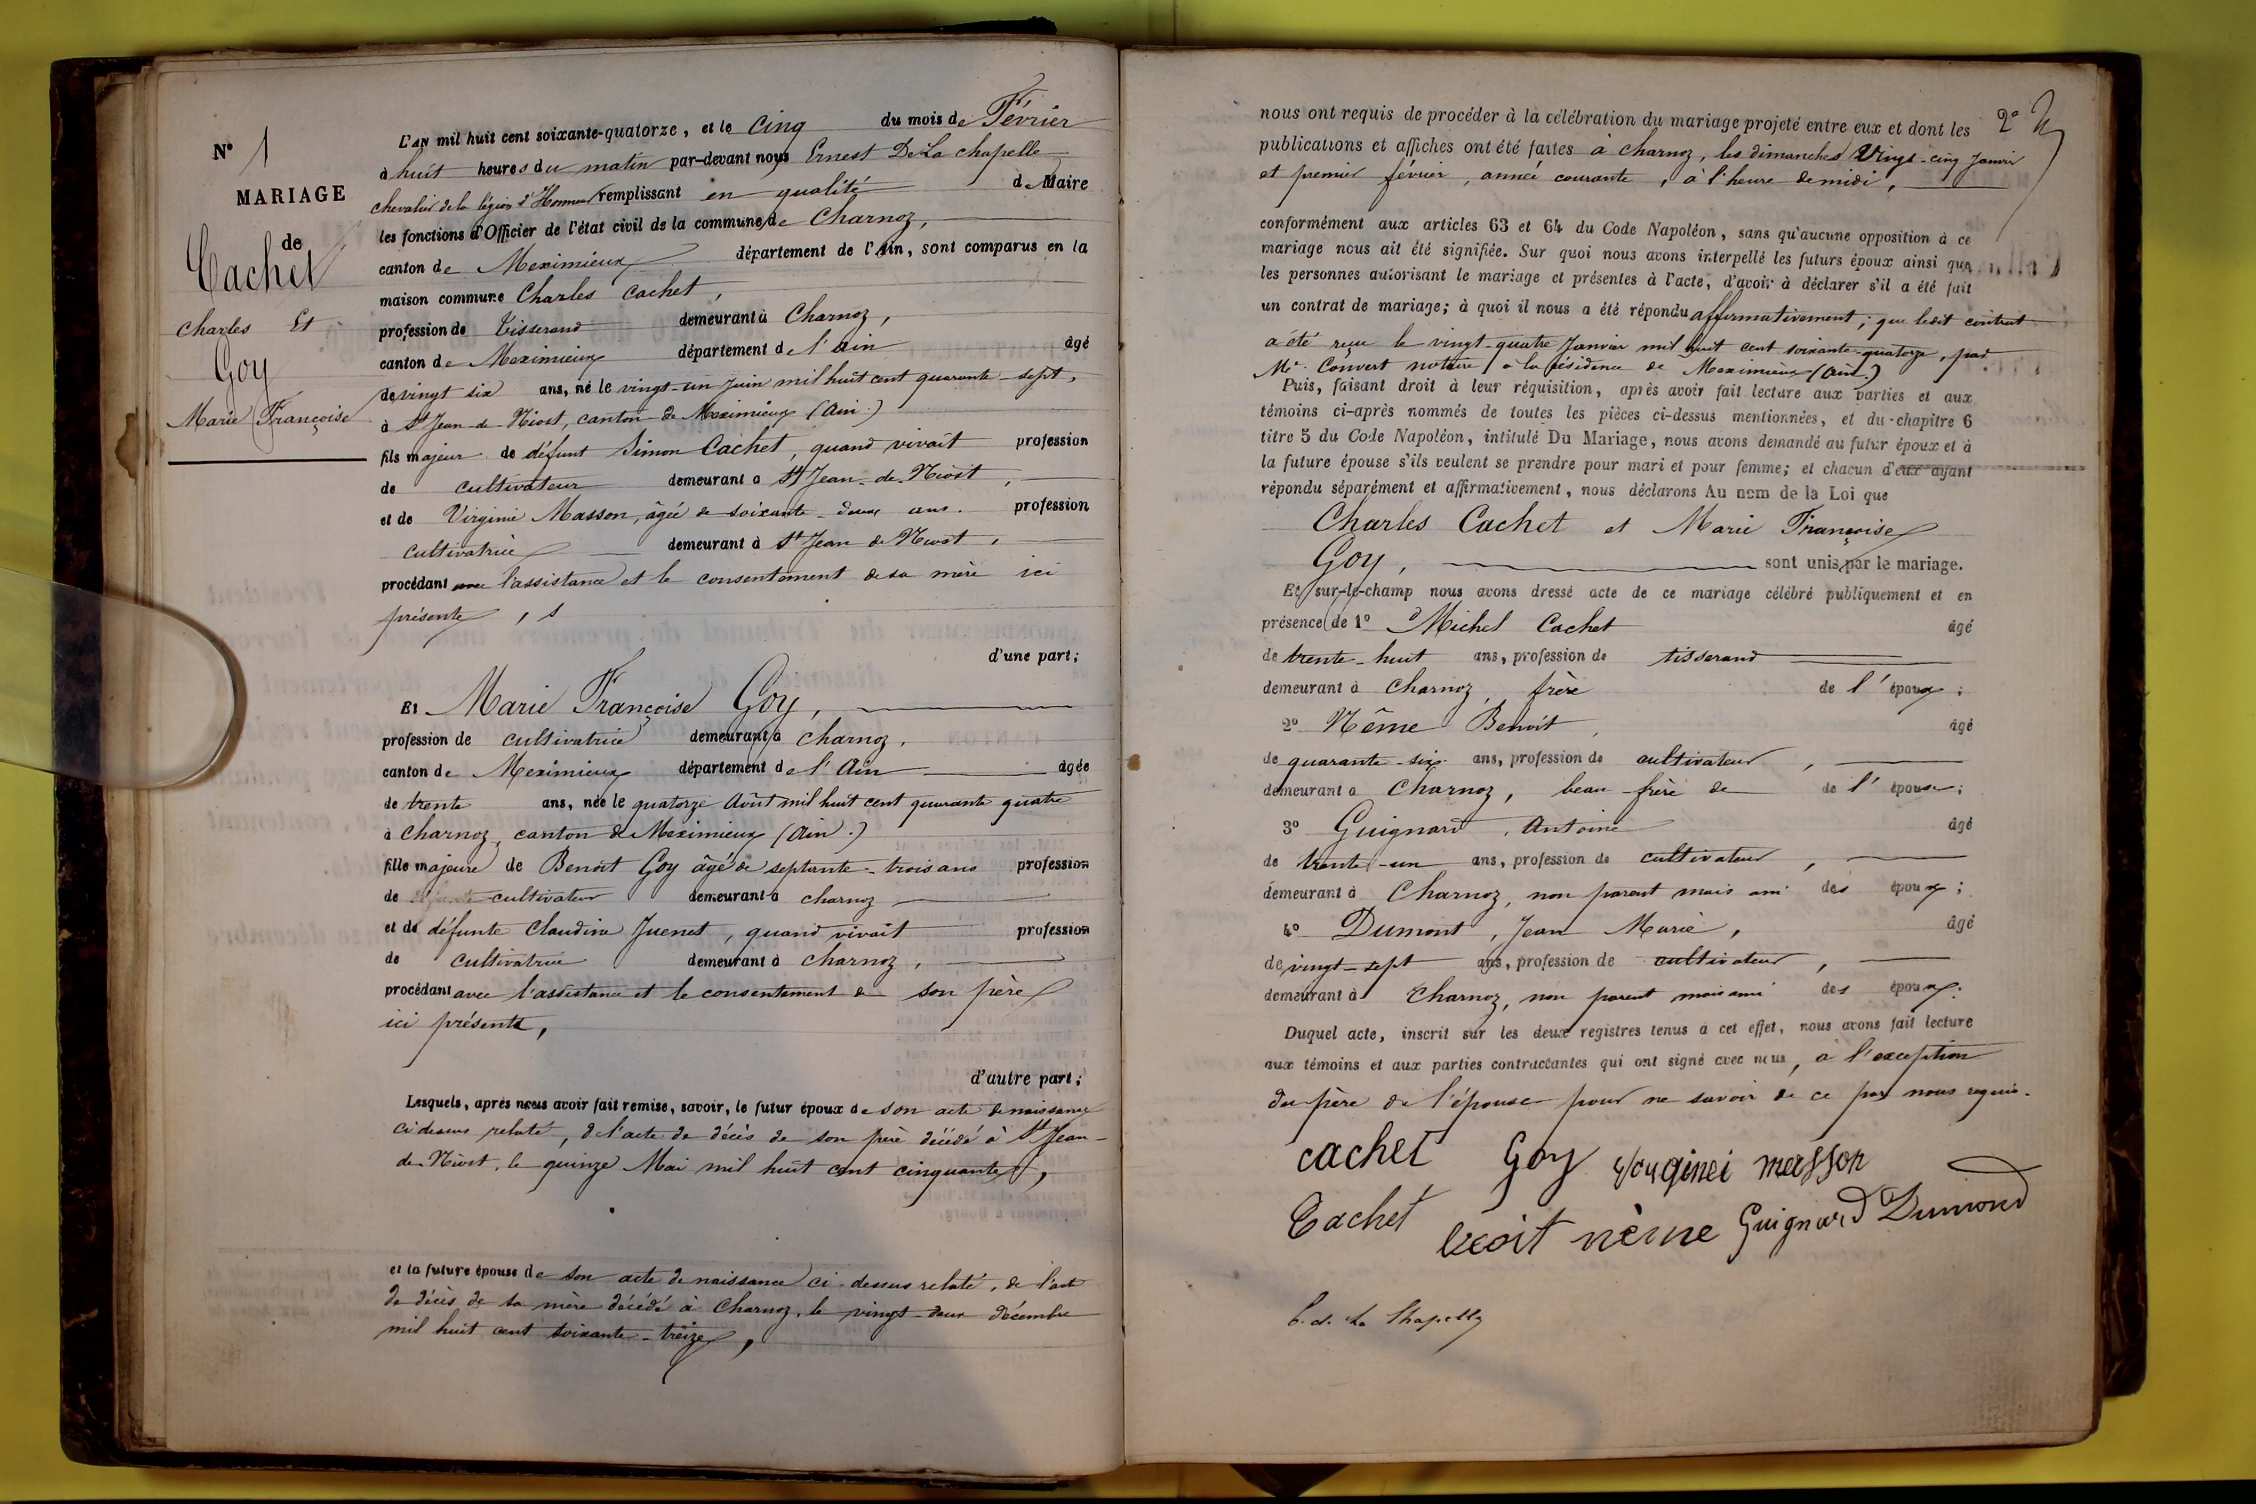 N° 1
MARIAGE
de
Cachet
Charles Et
Goy
Marie Françoise
L'AN mil huit cent soixante-quatorze, et le Cinq du mois de Février
à huit heures du matin par-devant nous Ernest De La Chapelle
Chevalier de la légion d'Honneur remplissant en qualité de Maire
les fonctions d'Officier de l'état civil de la commune de Charnoz,
canton de Meximieux département de l'Ain, sont comparus en la
maison commune Charles Cachet,
profession de Tisserand demeurant à Charnoz,
canton de Meximieux département de l'Ain âgé
de vingt six ans, né le vingt-un Juin mil huit cent quarante-sept,
à St Jean-de-Niost, canton de Meximieux (Ain.)
fils majeur de défunt Simon Cachet, quand vivait profession
de cultivateur demeurant à St Jean-de-Niost,
et de Virginie Masson, âgée de soixante-deux ans. profession
cultivatrice demeurant à St Jean de Niost,
procédant avec l'assistance et le consentement de sa mère ici
présente,
d'une part;
Et Marie Françoise Goy,
profession de cultivatrice demeurant à Charnoz,
canton de Meximieux département de l'Ain âgée
de trente ans, née le quatorze Août mil huit cent quarante quatre
à Charnoz, canton de Meximieux (Ain.)
fille majeure de Benoit Goy âgé de septante-trois ans profession
de cultivateur demeurant à charnoz
et de défunte Claudine Juenet, quand vivait profession
de cultivatrice demeurant à Charnoz,
procédant avec l'assistance et le consentement de son père
ici présente,
d'autre part;
Lesquels, après nous avoir fait remise, savoir, le futur époux de son acte de naissance
ci dessus relaté, de l'acte de décès de son père décédé à St Jean-
de-Niost, le quinze Mai mil huit cent cinquante,
et la future épouse de son acte de naissance ci-dessus relaté, de l'acte
de décès de sa mère décédé à Charnoz, le vingt-deux décembre
mil huit cent soixante-treize,
2e
nous ont requis de procéder à la célébration du mariage projeté entre eux et dont les
publications et affiches ont été faites à Charnoz, les dimanches Vingt-cinq Janvier
et premier février, année courante, à l'heure de midi,
conformément aux articles 63 et 64 du Code Napoléon, sans qu'aucune opposition à ce
mariage nous ait été signifiée. Sur quoi nous avons interpellé les futurs époux ainsi que
les personnes autorisant le mariage et présentes à l'acte, d'avoir à déclarer s'il a été fait
un contrat de mariage; à quoi il nous a été répondu affirmativement; que ledit contrat
a été reçu le vingt-quatre Janvier mil huit cent soixante-quatorze, par
Me Convert notaire à la résidence de Meximieux (Ain.)
Puis, faisant droit à leur réquisition, après avoir fait lecture aux parties et aux
témoins ci-après nommés de toutes les pièces ci-dessus mentionnées, et du chapitre 6
titre 5 du Code Napoléon, intitulé Du Mariage, nous avons demandé au futur époux et à
la future épouse s'ils veulent se prendre pour mari et pour femme; et chacun d'eux ayant
répondu séparément et affirmativement, nous déclarons Au nom de la Loi que
Charles Cachet et Marie Françoise
Goy, sont unis par le mariage.
Et sur-le-champ nous avons dressé acte de ce mariage célébré publiquement et en
présence de 1° Michel Cachet âgé
de trente-huit ans, profession de tisserand
demeurant à Charnoz, frère de l'époux;
2° Nême Benoit, âgé
de quarante-six ans, profession de cultivateur,
demeurant à Charnoz, beau frère de de l'épouse;
3° Guignard, Antoine âgé
de trente-un ans, profession de cultivateur,
demeurant à Charnoz, non parent mais ami des époux;
4° Dumont, Jean Marie, âgé
de vingt-sept ans, profession de cultivateur,
demeurant à Charnoz, non parent mais ami des époux.
Duquel acte, inscrit sur les deux registres tenus à cet effet, nous avons fait lecture
aux témoins et aux parties contractantes qui ont signé avec nous, à l'exception
du père de l'épouse pour ne savoir de ce par nous requis.
cachet Goy masson
Cachet nème Guignard Dumond
E. d. La Chapelle